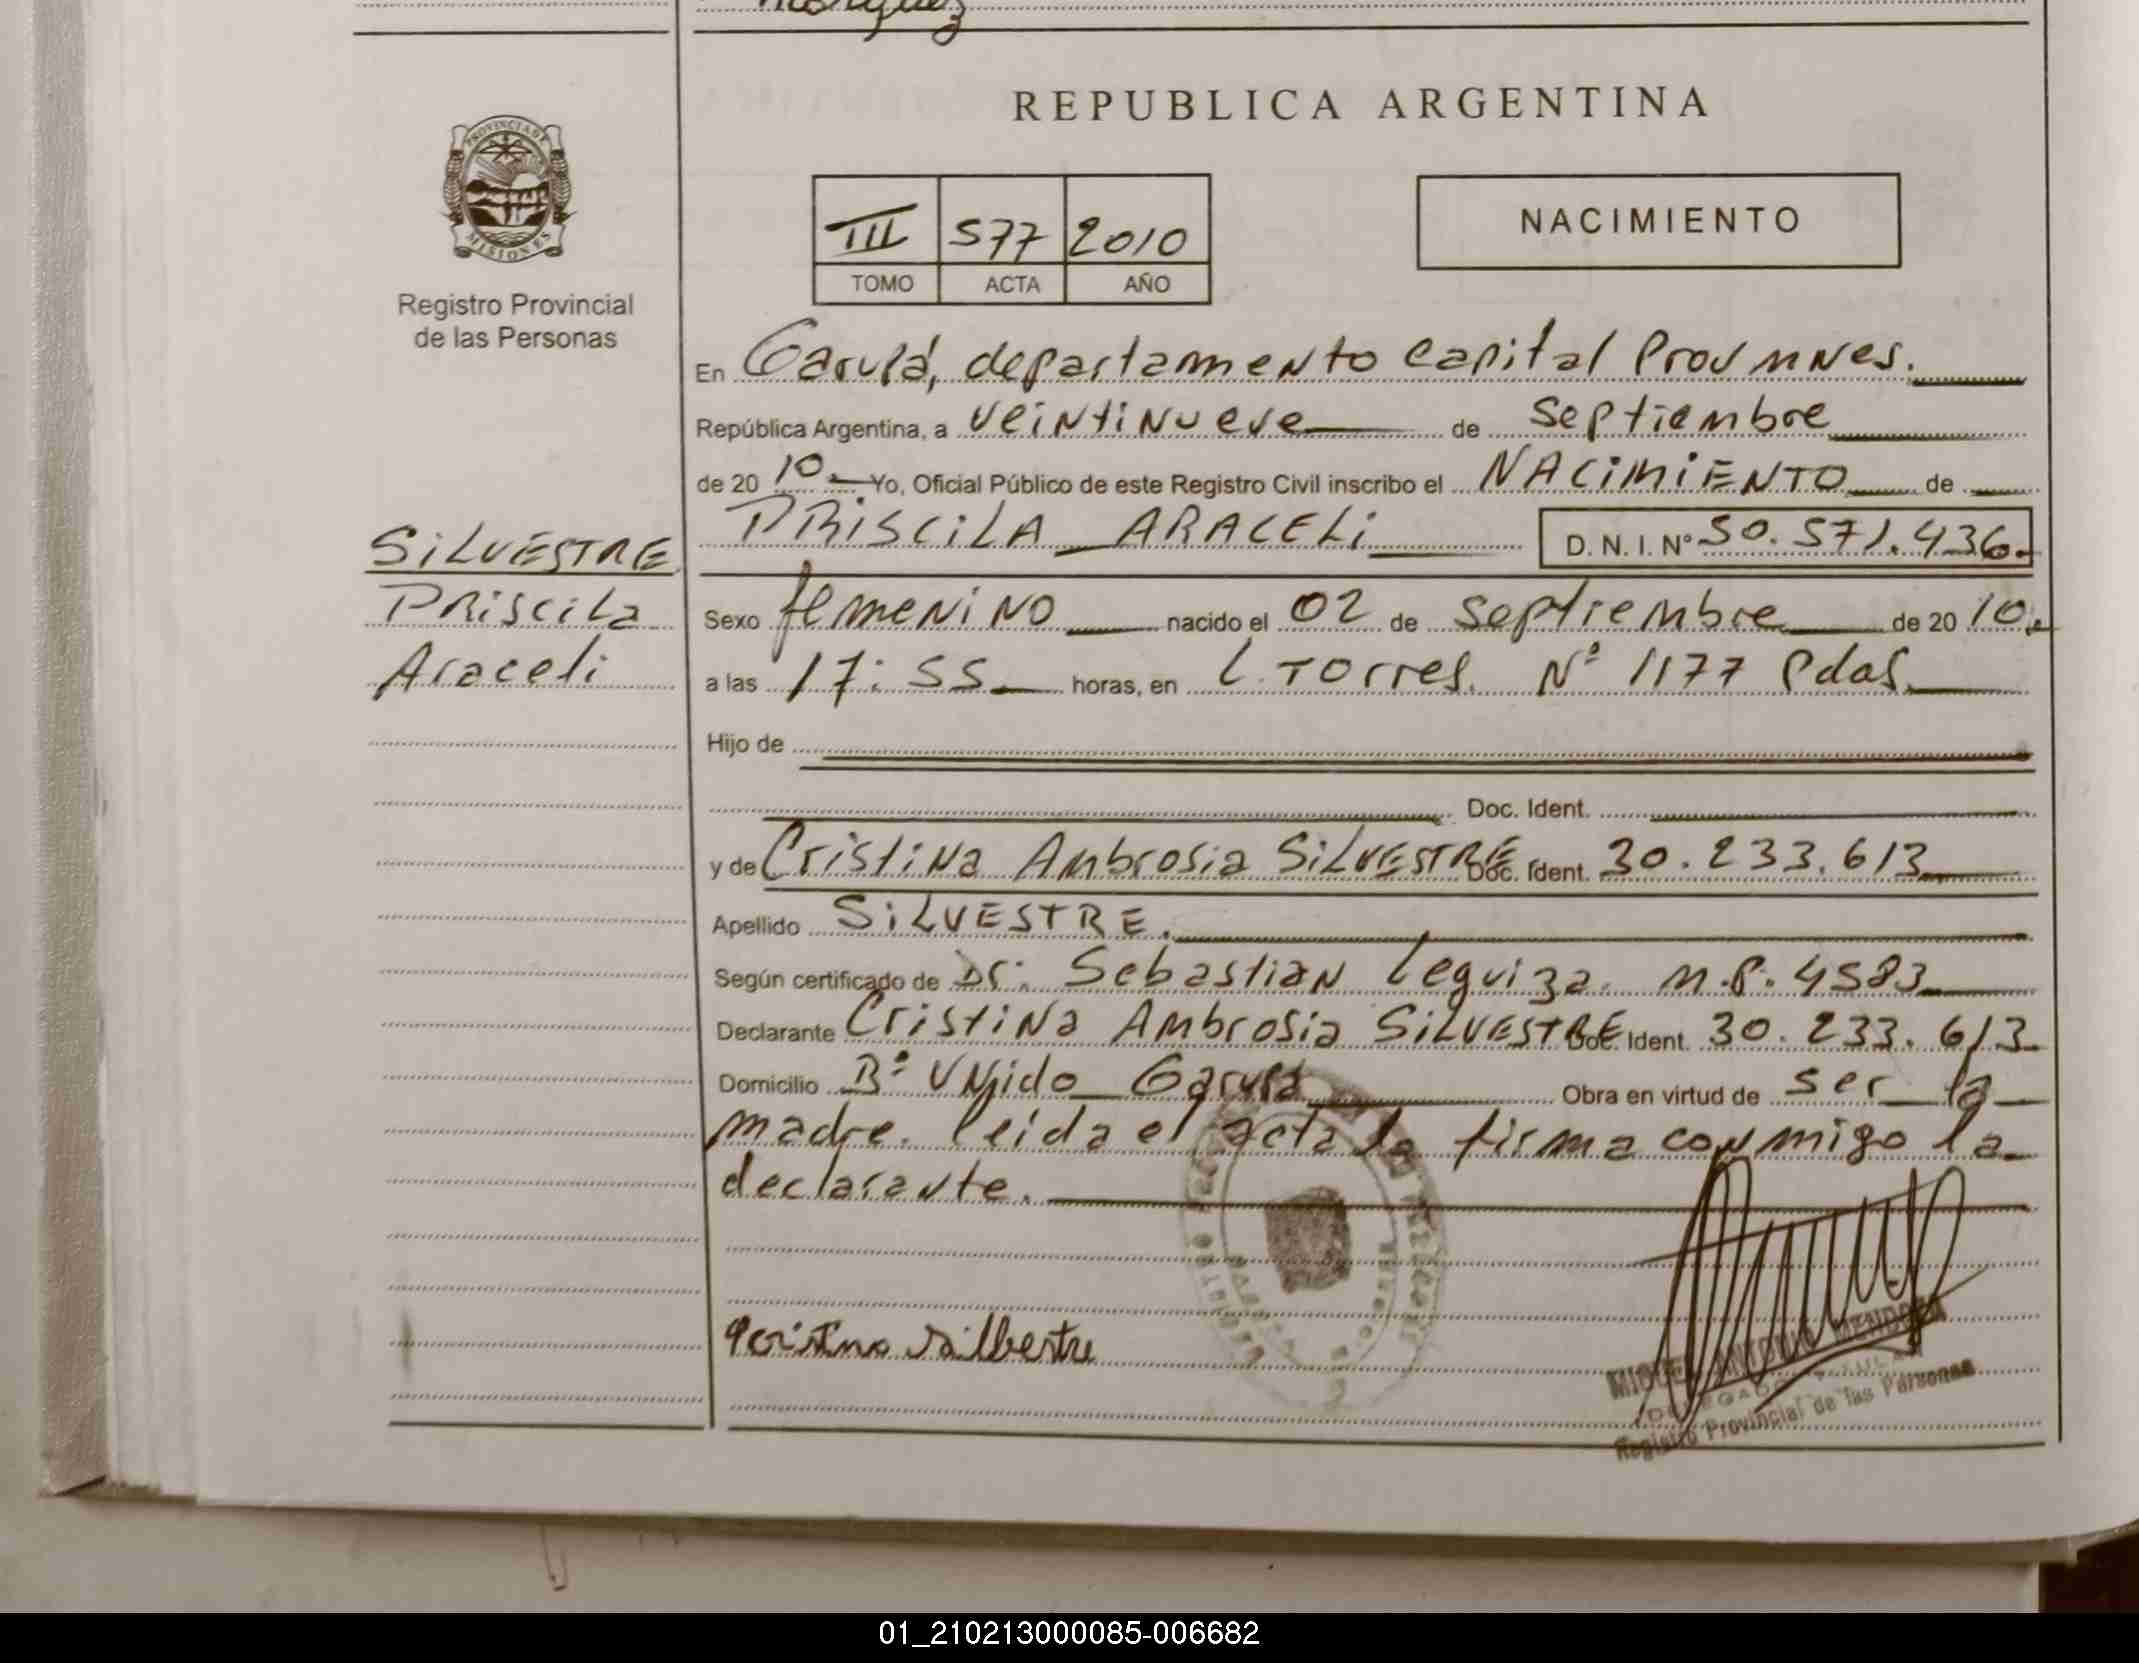 REPUBLICA ARGENTINA
PROVINCIA DE
MISIONES
Registro Provincial
de las Personas
III 577 2010
TOMO ACTA AÑO
NACIMIENTO
En Garupá, departamento Capital Prov mnes.
República Argentina, a veintinueve de septiembre
de 20 10 Yo, Oficial Público de este Registro Civil inscribo el NACIMIENTO de
PRISCILA ARACELI D.N.I. Nº 50.571.436.
SILVESTRE
Priscila
Araceli
Sexo femenino nacido el 02 de septiembre de 20 10.
a las 17:55 horas, en L. Torres. Nº 1177 Pdas.
Hijo de
Doc. Ident.
y de Cristina Ambrosia SILVESTRE Doc. Ident. 30.233.613
Apellido SILVESTRE.
Según certificado de Dr. Sebastian Leguiza. M.P. 4583
Declarante Cristina Ambrosia SILVESTRE Doc. Ident. 30.233.613
Domicilio Bº Unido Garupá Obra en virtud de ser la
madre. leida el acta la firma conmigo la
declarante.
Silbestre
MIGUEL ANTONIO MENDOZA
Registro Provincial de las Personas
01_210213000085-006682